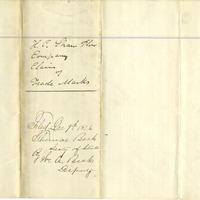 H. C. Shaw Plow
Company
Claim
of
Trade Marks
Filed Dec 9th
Thomas Beck
Secty of State
By Wm A. Beck
Deputy